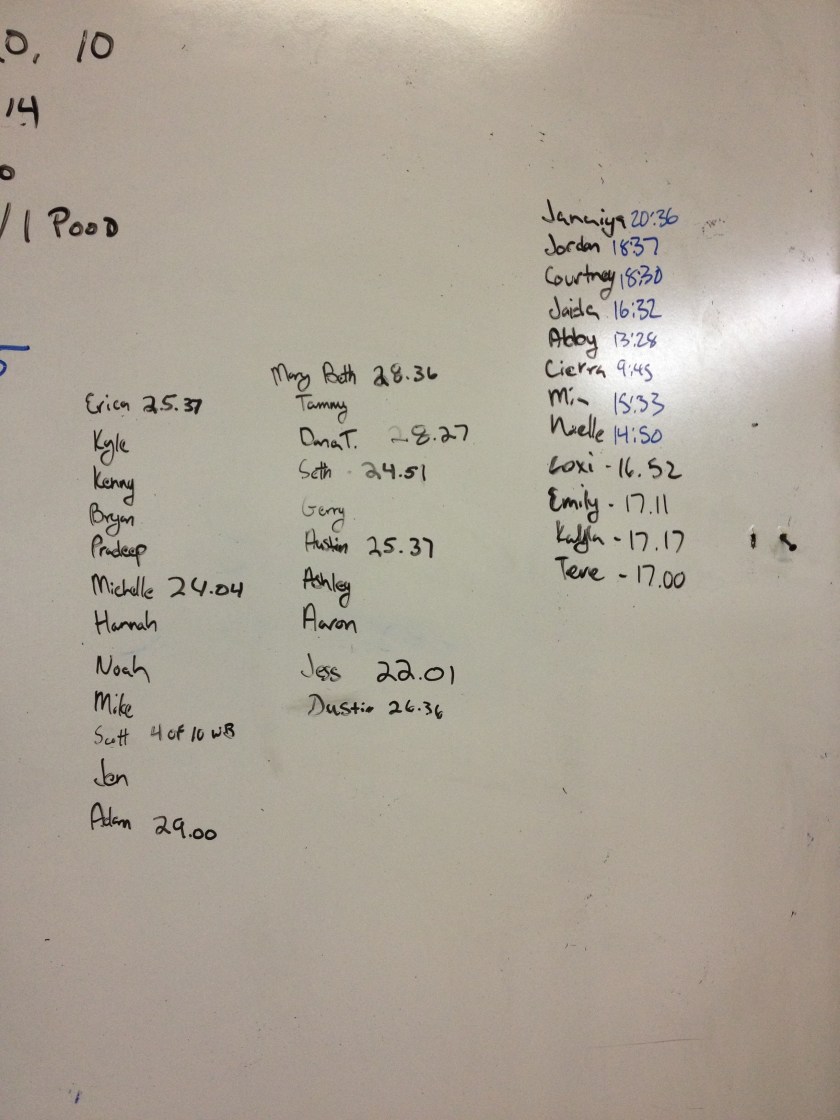 0, 10
14
0
/ 1 POOD
5
Erica 25.37
Kyle
Kenny
Bryan
Pradeep
Michelle 24.04
Hannah
Noah
Mike
Scott 4 OF 10 WB
Jen
Adam 29.00
Mary Beth 28.36
Tammy
Dana T. 28.27
Seth - 24.51
Gerry
Austin 25.37
Ashley
Aaron
Jess 22.01
Dustin 26.36
Janaiya 20:36
Jordan 18:37
Courtney 18:30
Jaida 16:32
Abby 13:28
Cierra 9:45
Mia 15:33
Noelle 14:50
Loxi - 16.52
Emily - 17.11
Kayla - 17.17
Teve - 17.00